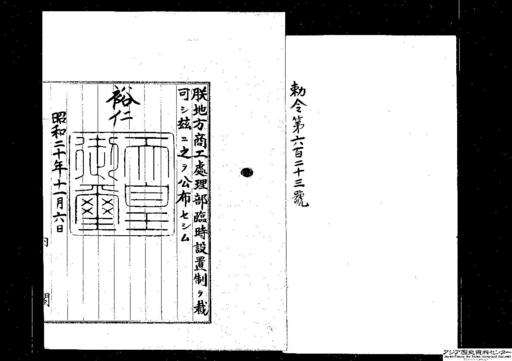 勅令第六百二十三號
朕地方商工處理部臨時設置制ヲ裁
可シ玆ニ之ヲ公布セシム
裕仁
天皇
御璽
昭和二十年十一月六日
内閣
アジア歴史資料センター